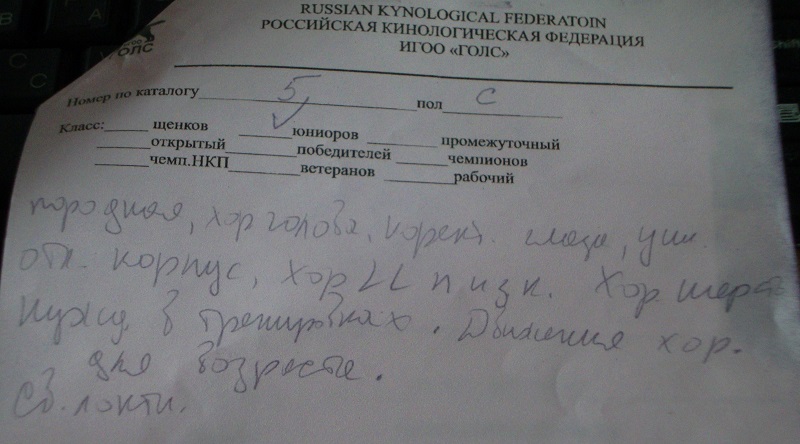 RUSSIAN KYNOLOGICAL FEDERATOIN
РОССИЙСКАЯ КИНОЛОГИЧЕСКАЯ ФЕДЕРАЦИЯ
ИГОО «ГОЛС»
ГОЛС
Номер по каталогу 5 пол С
Класс: щенков ✓ юниоров промежуточный
открытый победителей чемпионов
чемп.НКП ветеранов рабочий
породная, хор голова, корект. глаза, уши.
отл. корпус, хор LL п и зк. Хор шерсть
Нужд в тренировках. Движения хор.
для возраста.
Св. локти.